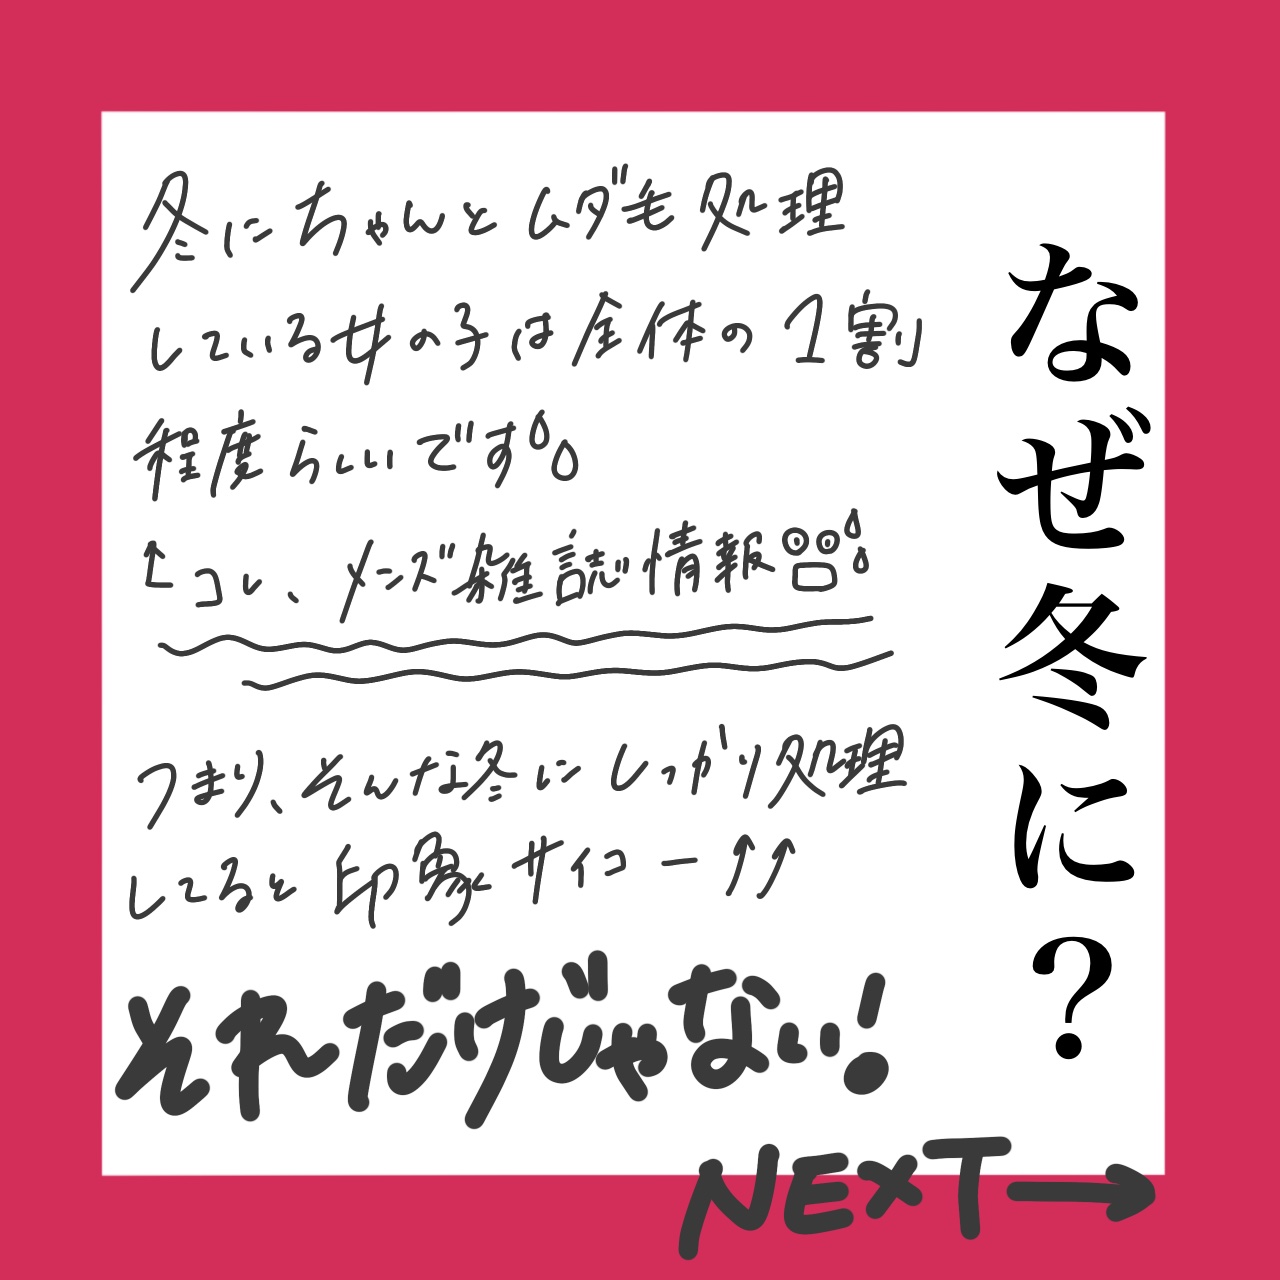 なぜ冬に？
冬にちゃんとムダ毛処理
している女の子は全体の1割
程度らしいです
↑コレ、メンズ雑誌情報
つまり、そんな冬にしっかり処理
してると印象サイコー↑↑
それだけじゃない!
NEXT→